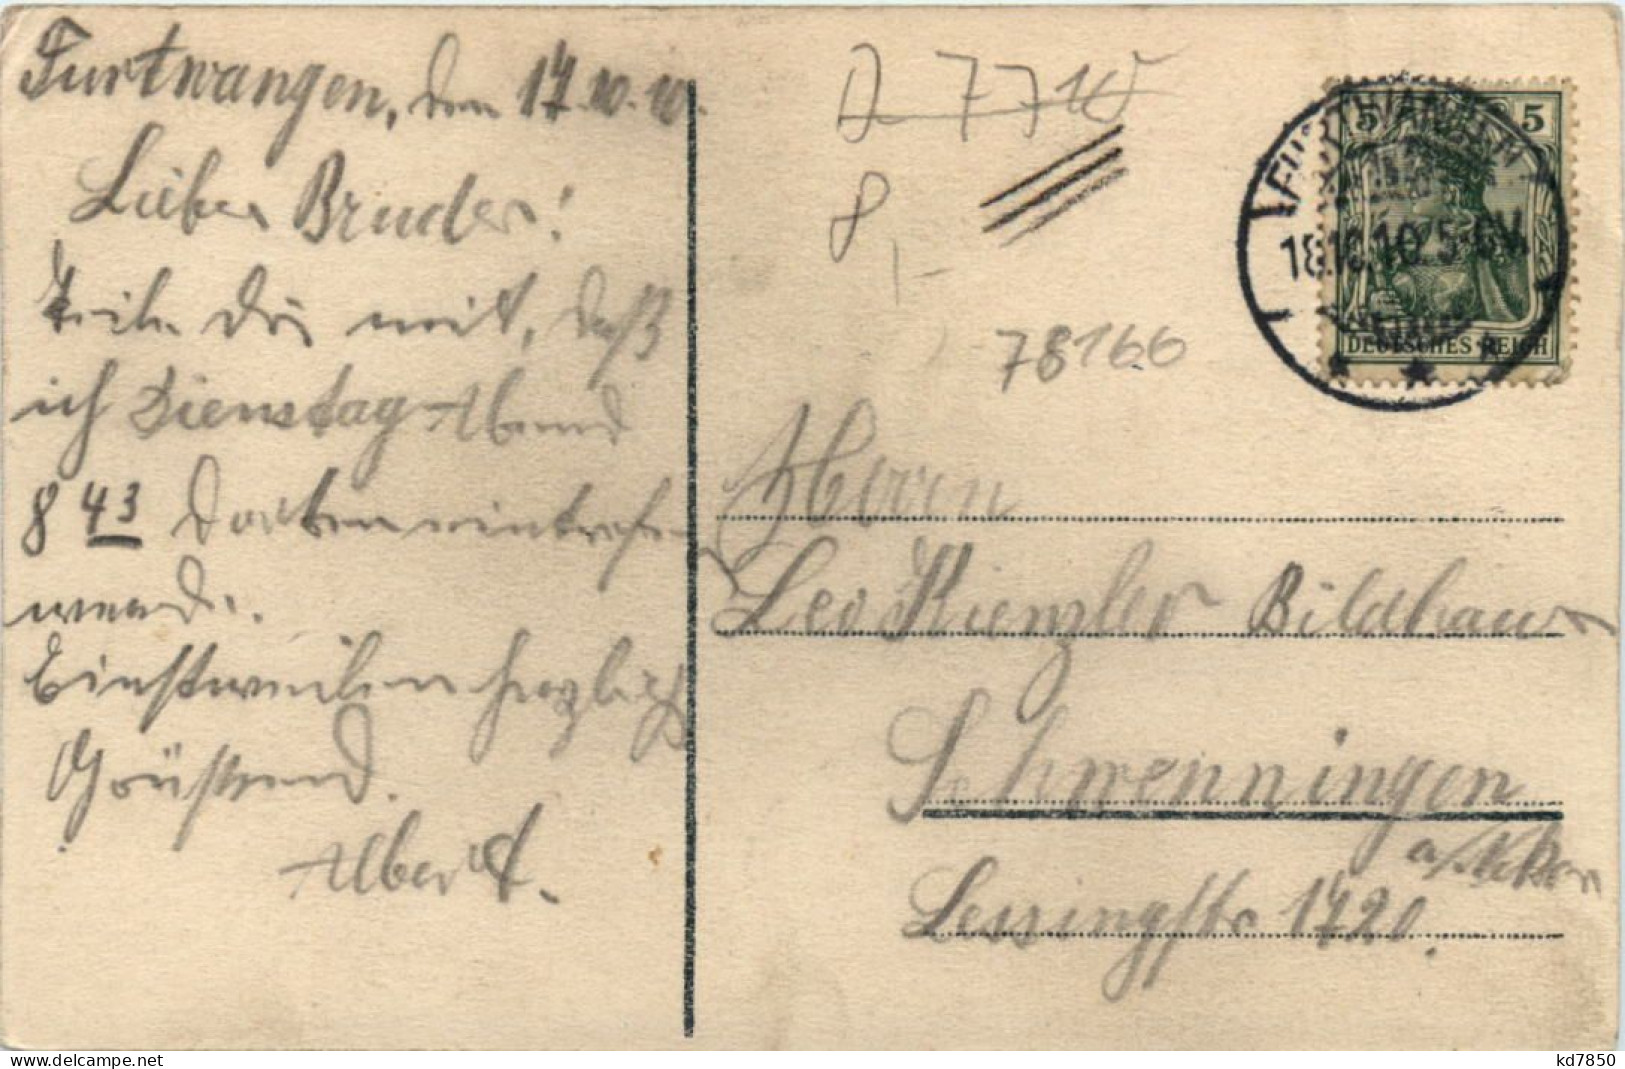 Furtwangen, den 17.10.10.
Lieber Bruder!
Teile Dir mit, daß
ich Dienstag Abend
8 43 dorten eintrefen
werde.
Einstweilen herzlich
Grüßend.
Albert.
D 7710
8,-
78166
FURTWANGEN
18.10.10. 5-6 N.
5 5
DEUTSCHES REICH
Herrn
Leo Kienzler Bildhauer
Schwenningen
a/Neckar
Lessingstr. 1720.
delcampe.net
kd7850